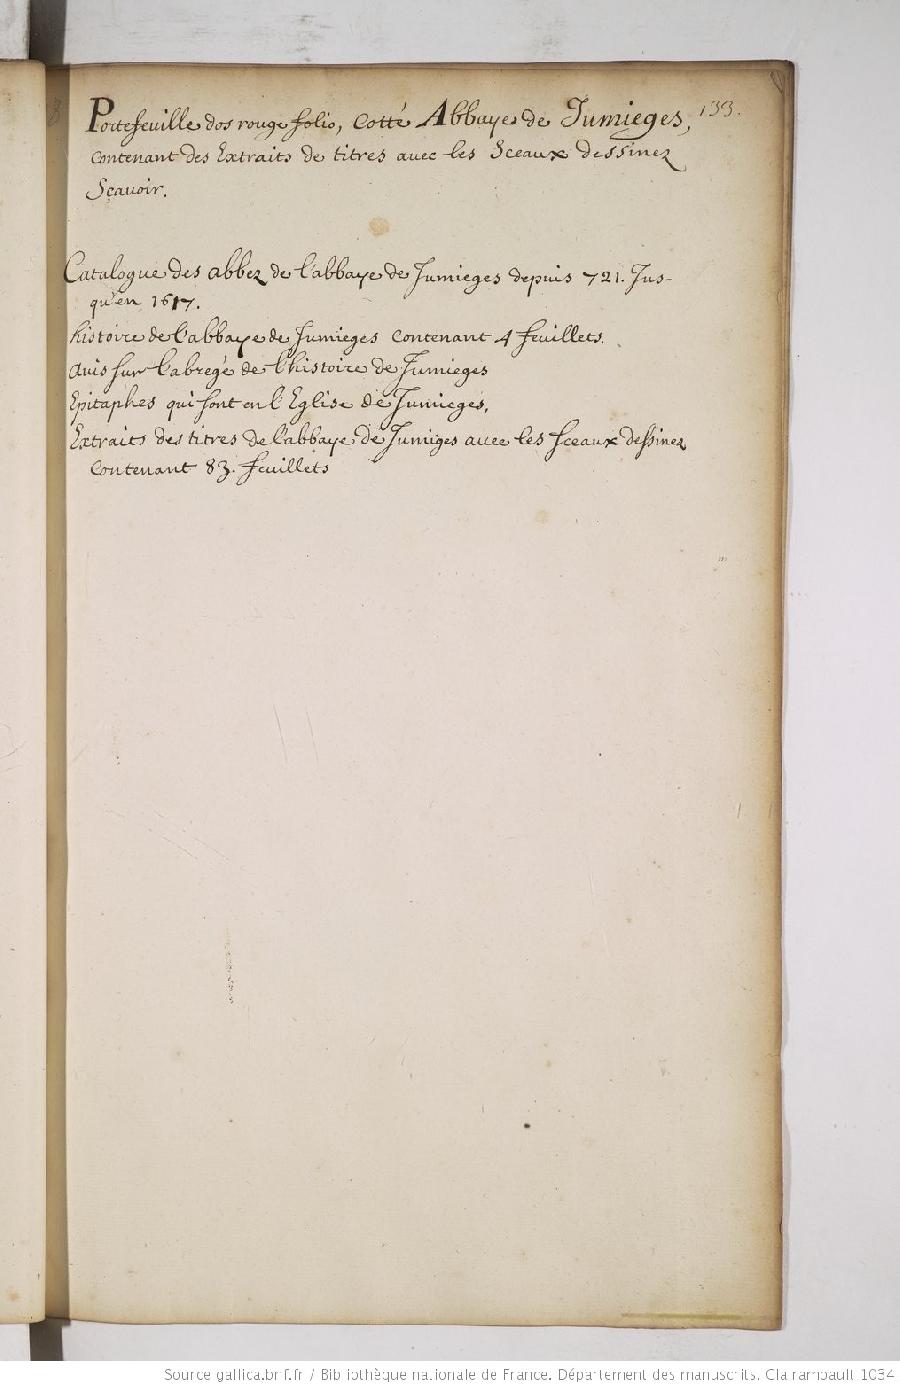 Portefeuille dos rouge folio, cotté Abbaye de Jumieges, 133.
contenant des Extraits de titres avec les Sceaux dessinez
Sçavoir.
Catalogue des abbez de l'abbaye de Jumieges depuis 721. Jus-
qu'en 1617.
histoire de l'abbaye de Jumieges contenant 4 feuillets.
avis sur l'abregé de l'histoire de Jumieges
Epitaphes qui sont en l'Eglise de Jumieges.
Extraits des titres de l'abbaye de Jumiges avec les sceaux dessinez
contenant 83. feuillets
Source gallica.bnf.fr / Bibliothèque nationale de France. Département des manuscrits. Clairambault 1034